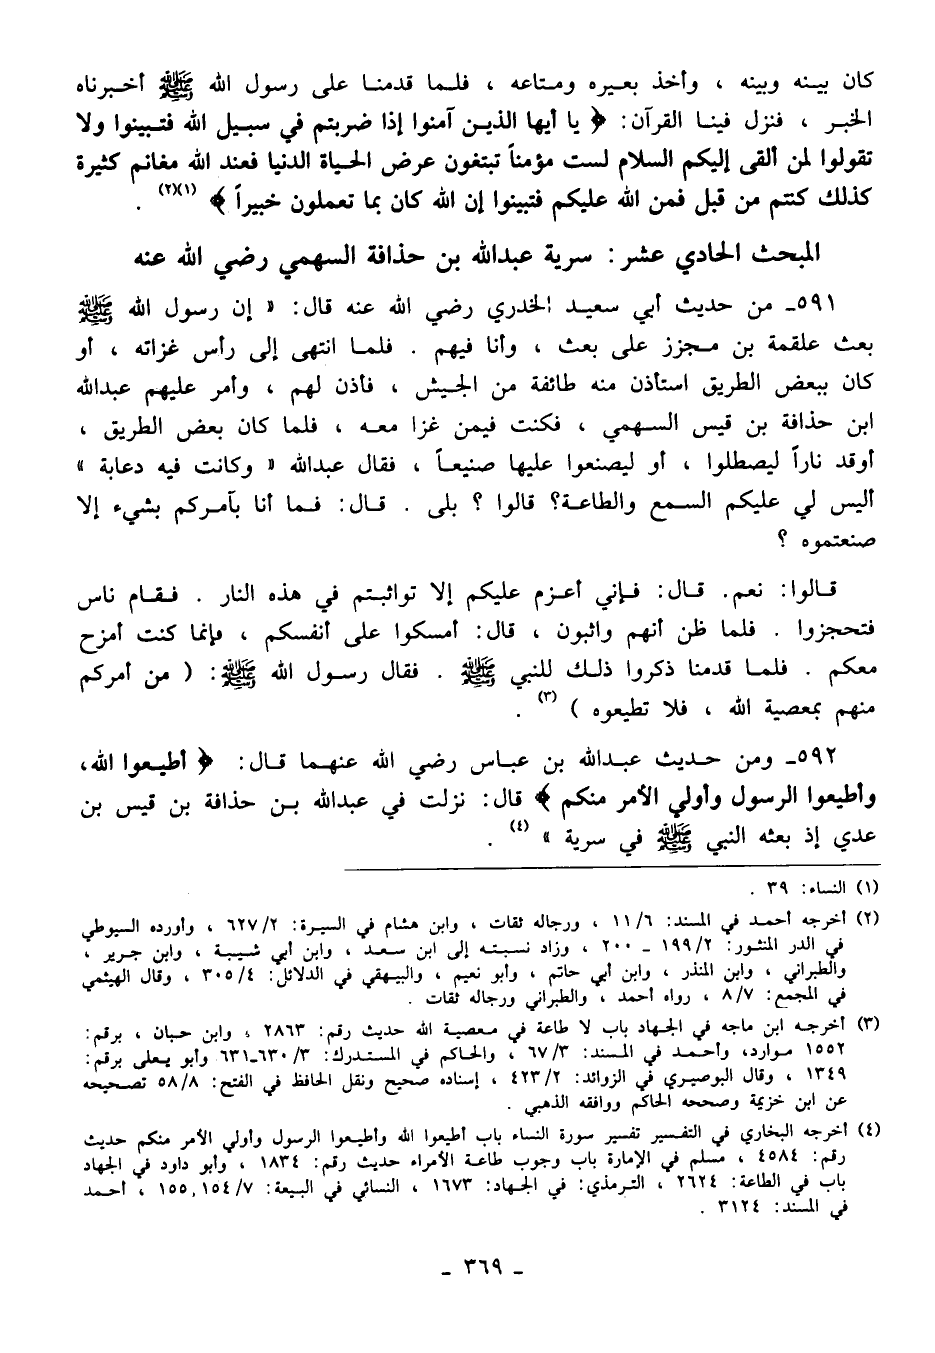 كان بينه وبينه ، وأخذ بعيره ومتاعه ، فلما قدمنا على رسول الله ﷺ أخبرناه
الخبر ، فنزل فينا القرآن: ﴿ يا أيها الذين آمنوا إذا ضربتم في سبيل الله فتبينوا ولا
تقولوا لمن ألقى إليكم السلام لست مؤمناً تبتغون عرض الحياة الدنيا فعند الله مغانم كثيرة
كذلك كنتم من قبل فمن الله عليكم فتبينوا إن الله كان بما تعملون خبيراً ﴾ (١)(٢) .
المبحث الحادي عشر: سرية عبدالله بن حذافة السهمي رضي الله عنه
٥٩١ـ من حديث أبي سعيد الخدري رضي الله عنه قال: « إن رسول الله ﷺ
بعث علقمة بن مجزز على بعث ، وأنا فيهم . فلما انتهى إلى رأس غزاته ، أو
كان ببعض الطريق استأذن منه طائفة من الجيش ، فأذن لهم ، وأمر عليهم عبدالله
ابن حذافة بن قيس السهمي ، فكنت فيمن غزا معه ، فلما كان بعض الطريق ،
أوقد ناراً ليصطلوا ، أو ليصنعوا عليها صنيعاً ، فقال عبدالله « وكانت فيه دعابة »
أليس لي عليكم السمع والطاعة؟ قالوا ؟ بلى . قال: فما أنا بآمركم بشيء إلا
صنعتموه ؟
قالوا: نعم. قال: فإني أعزم عليكم إلا تواثبتم في هذه النار . فقام ناس
فتحجزوا . فلما ظن أنهم واثبون ، قال: أمسكوا على أنفسكم ، فإنما كنت أمزح
معكم . فلما قدمنا ذكروا ذلك للنبي ﷺ . فقال رسول الله ﷺ: ( من أمركم
منهم بمعصية الله ، فلا تطيعوه ) (٣) .
٥٩٢ـ ومن حديث عبدالله بن عباس رضي الله عنهما قال: ﴿ أطيعوا الله،
وأطيعوا الرسول وأولي الأمر منكم ﴾ قال: نزلت في عبدالله بن حذافة بن قيس بن
عدي إذ بعثه النبي ﷺ في سرية » (٤) .
(١) النساء: ٣٩ .
(٢) أخرجه أحمد في المسند: ١١/٦ ، ورجاله ثقات ، وابن هشام في السيرة: ٦٢٧/٢ ، وأورده السيوطي
في الدر المنثور: ١٩٩/٢ ـ ٢٠٠ ، وزاد نسبته إلى ابن سعد ، وابن أبي شيبة ، وابن جرير ،
والطبراني ، وابن المنذر ، وابن أبي حاتم ، وأبو نعيم ، والبيهقي في الدلائل: ٣٠٥/٤ ، وقال الهيثمي
في المجمع: ٨/٧ ، رواه أحمد ، والطبراني ورجاله ثقات .
(٣) أخرجه ابن ماجه في الجهاد باب لا طاعة في معصية الله حديث رقم: ٢٨٦٣ ، وابن حبان ، برقم:
١٥٥٢ موارد، وأحمد في المسند: ٦٧/٣ ، والحاكم في المستدرك: ٦٣٠/٣ـ٦٣١ وأبو يعلى برقم:
١٣٤٩ ، وقال البوصيري في الزوائد: ٤٢٣/٢ ، إسناده صحيح ونقل الحافظ في الفتح: ٥٨/٨ تصحيحه
عن ابن خزيمة وصححه الحاكم ووافقه الذهبي .
(٤) أخرجه البخاري في التفسير تفسير سورة النساء باب أطيعوا الله وأطيعوا الرسول وأولي الأمر منكم حديث
رقم: ٤٥٨٤ ، مسلم في الإمارة باب وجوب طاعة الأمراء حديث رقم: ١٨٣٤ ، وأبو داود في الجهاد
باب في الطاعة: ٢٦٢٤ ، الترمذي: في الجهاد: ١٦٧٣ ، النسائي في البيعة: ١٥٥,١٥٤/٧ ، أحمد
في المسند: ٣١٢٤ .
ـ ٣٦٩ ـ